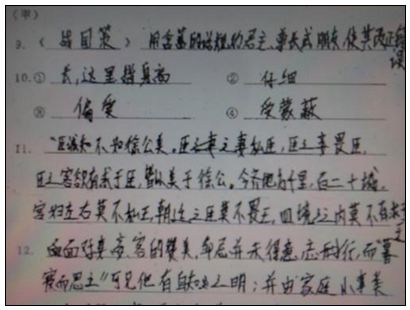 （軍）
9.《战国策》 用含蓄的 规劝君主、尊长或朋友,使其改正错误
10.① 长,这里指身高 ② 仔细
③ 偏爱 ④ 受蒙蔽
11. "臣诚知不如徐公美。臣之妻之妻私臣,臣之妾畏臣,
臣之客欲有求于臣,皆以美于徐公。今齐地方千里,百二十城,
宫妇左右莫不私王,朝廷之臣莫不畏王,四境之内莫不有求于王
12. 面对妻妾客的赞美,邹忌并未得意忘形 ,而"暮
寝而思之"可见他有自知之明;并由家庭小事类